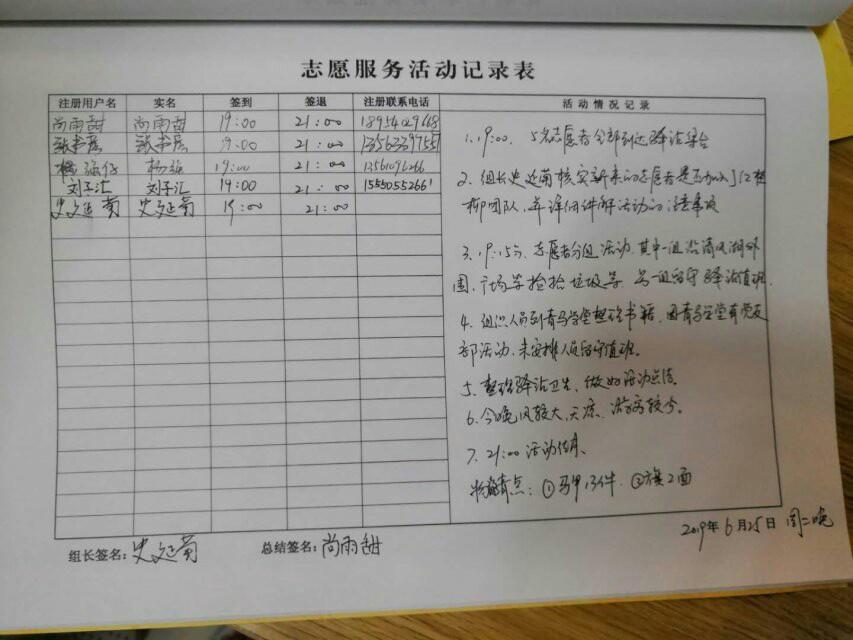 志愿服务活动记录表
注册用户名 实名 签到 签退 注册联系电话 活动情况记录
尚雨甜 尚雨甜 19:00 21:00
19:00 21:00
杨 19:00 21:00 13561096266
刘子汇 刘子汇 19:00 21:00 15550552661
史延菊 史延菊 19:00 21:00
1.19:00. 5名志愿者全部到达驿站集合
2.组长史延菊核实新来的志愿者是否加入红柽
柳团队,并详细讲解活动的注意事项
3.19:15分,志愿者分组活动.其中一组沿清风湖外
围、广场等捡拾垃圾等 另一组留守驿站值班.
4.组织人员到青马学堂整理书籍,因青马学堂有党支
部活动,未安排人员留守值班.
5.整理驿站卫生,做好活动总结.
6.今晚风较大,天凉、游客较少。
7.21:00 活动结束.
物品清点:①马甲13件 ②旗2面
2019年6月25日 周二晚
组长签名:史延菊 总结签名:尚雨甜